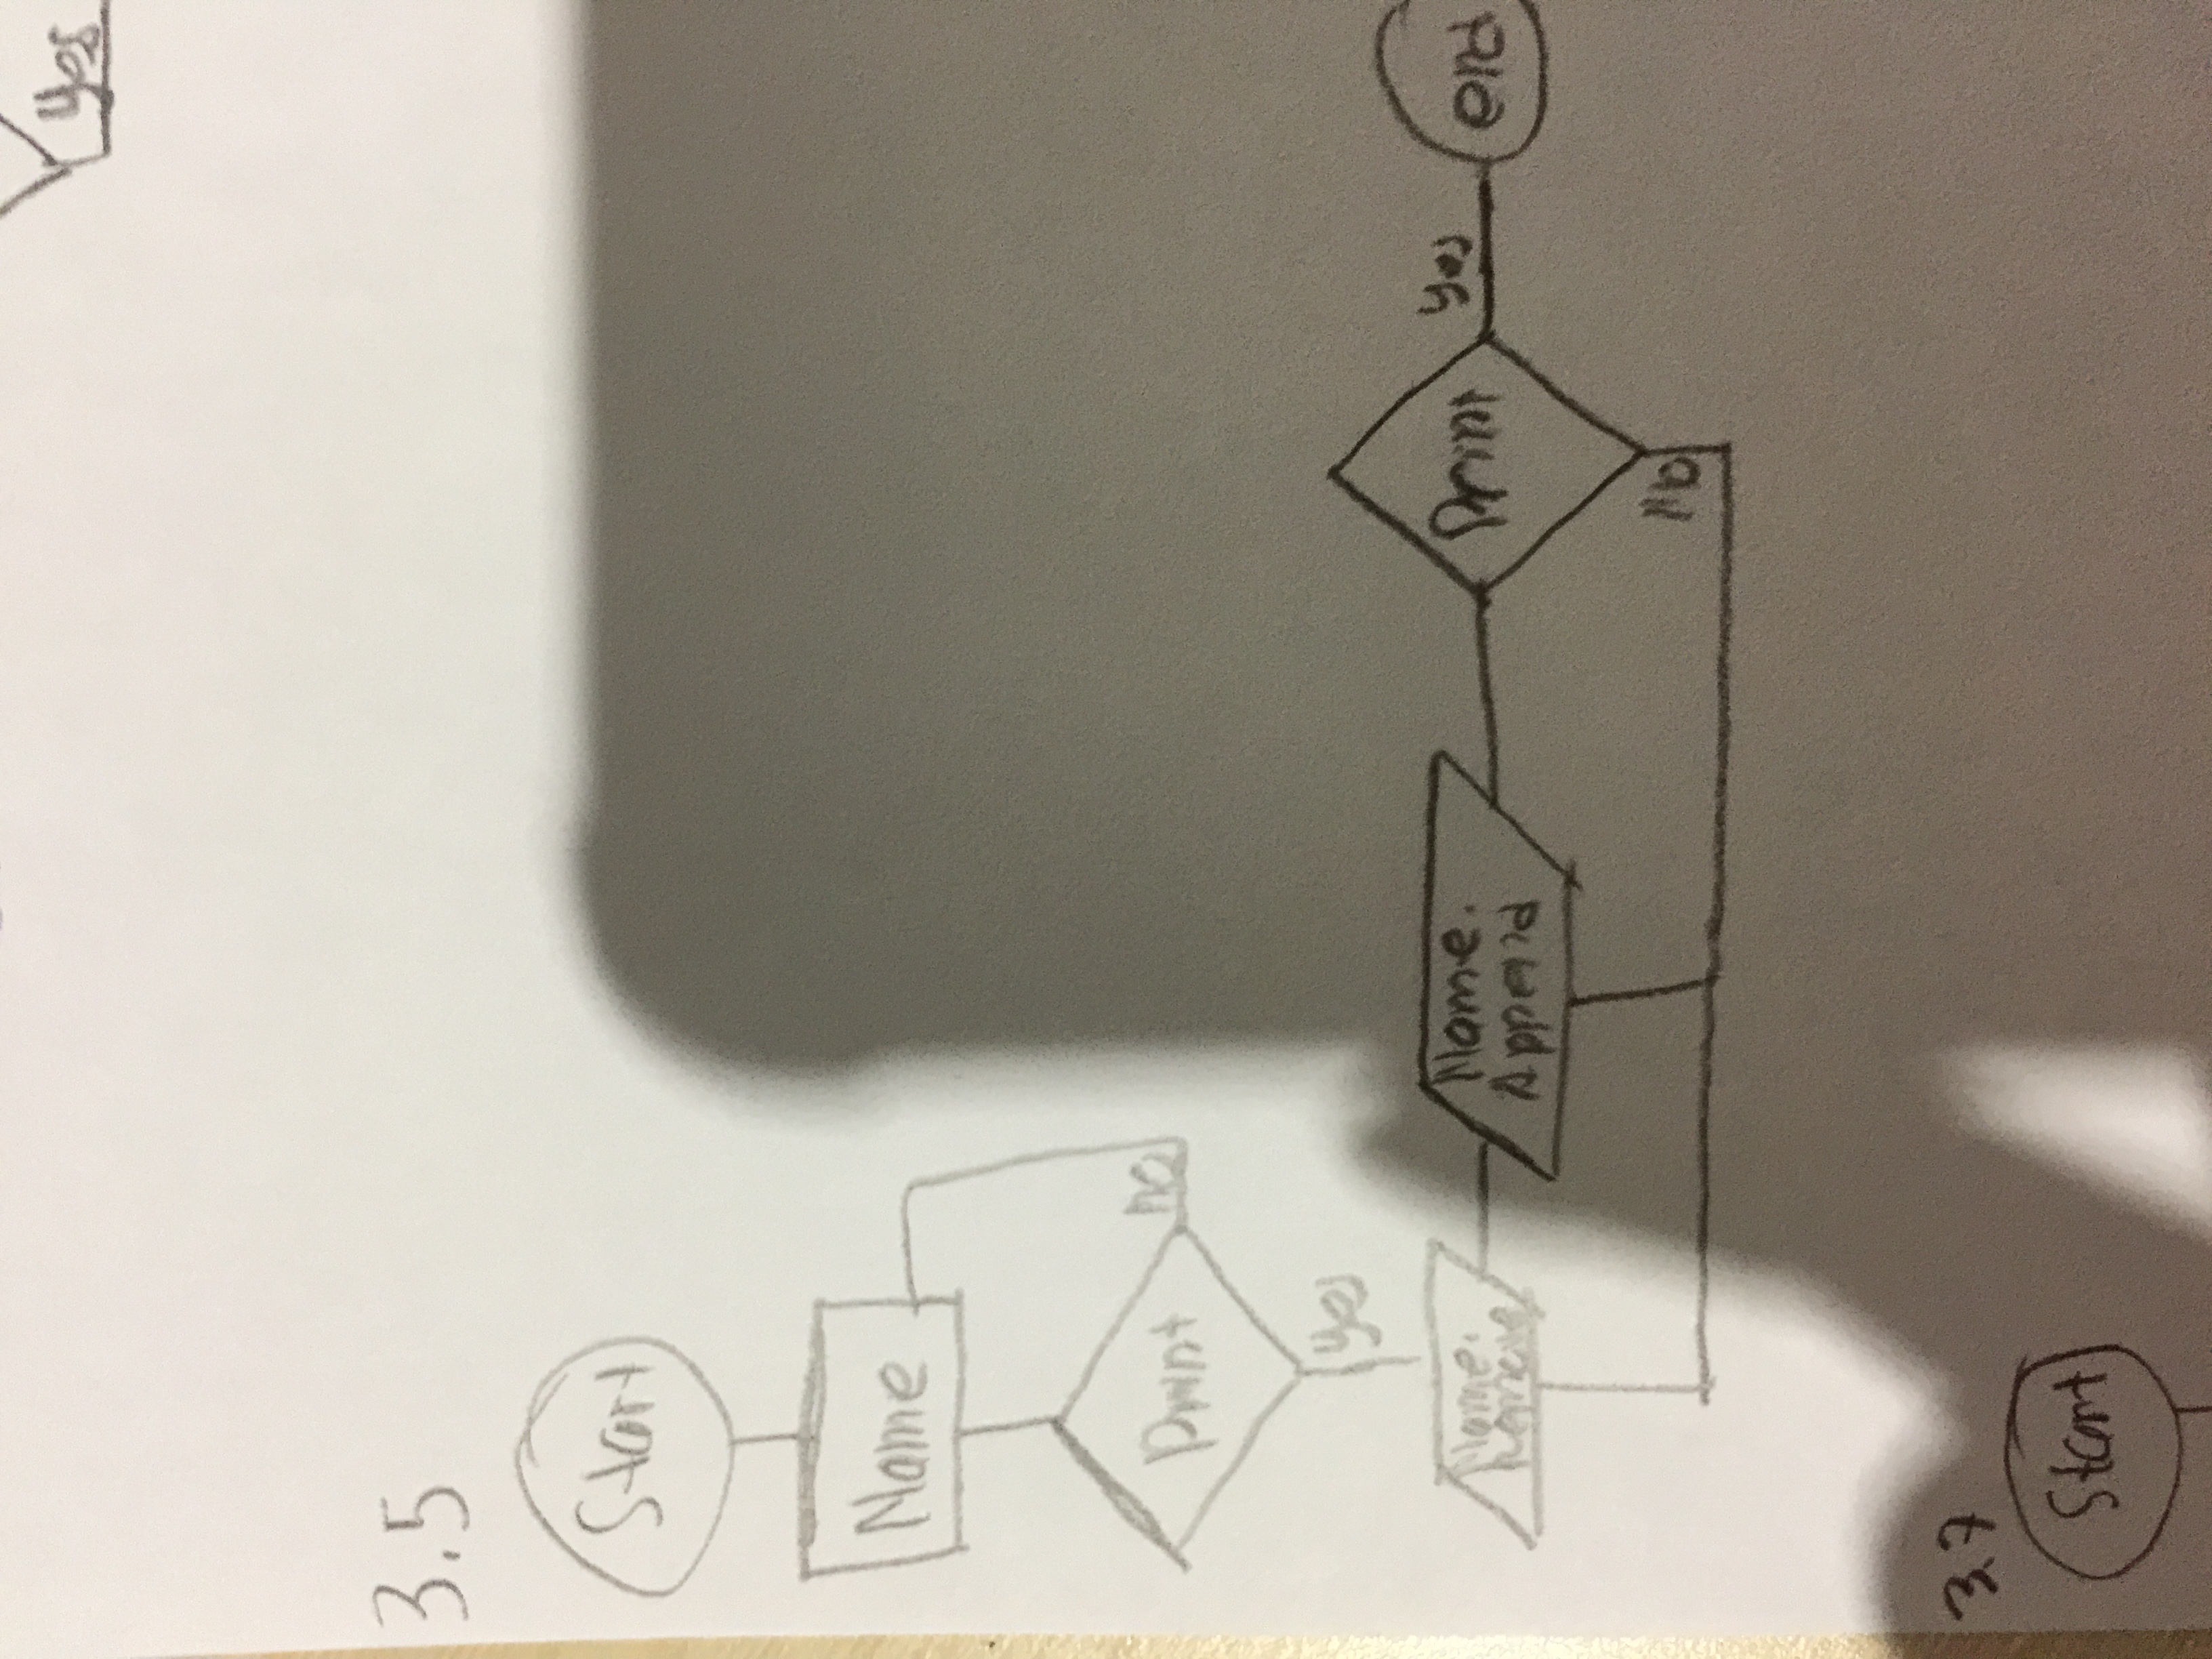 yes
3.5
Start
Name
Print
no
yes
Name.
Remove
Name.
Append
Print
yes
end
No
3.7
Start